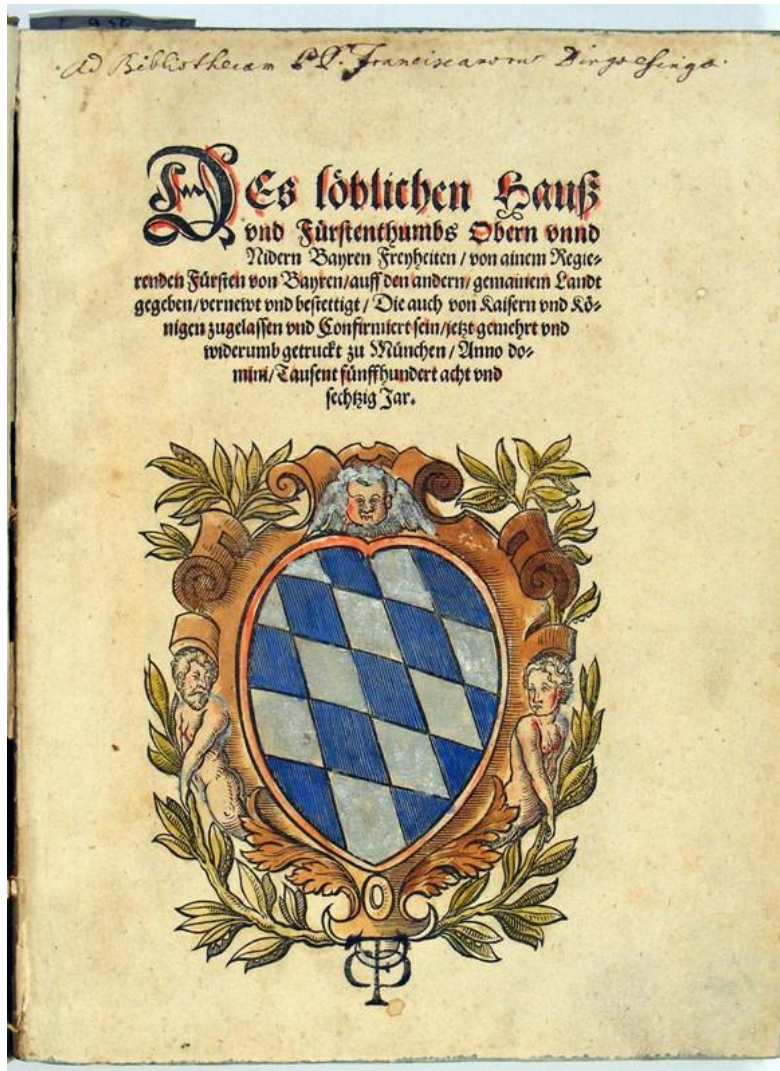 Ad Bibliothecam P.P. Franciscanorum Dingolfingae.
DEs löblichen Hauß
vnd Fürstenthumbs Obern vnnd
Nidern Bayren Freyheiten / von ainem Regie-
renden Fürsten von Bayren / auff den andern / gemainem Landt
gegeben / vernewt vnd bestettigt / Die auch von Kaisern vnd Kö-
nigen zugelassen vnd Confirmiert sein / jetzt gemehrt vnd
widerumb getruckt zu München / Anno do-
mini / Tausent fünffhundert acht vnd
sechtzig Jar.